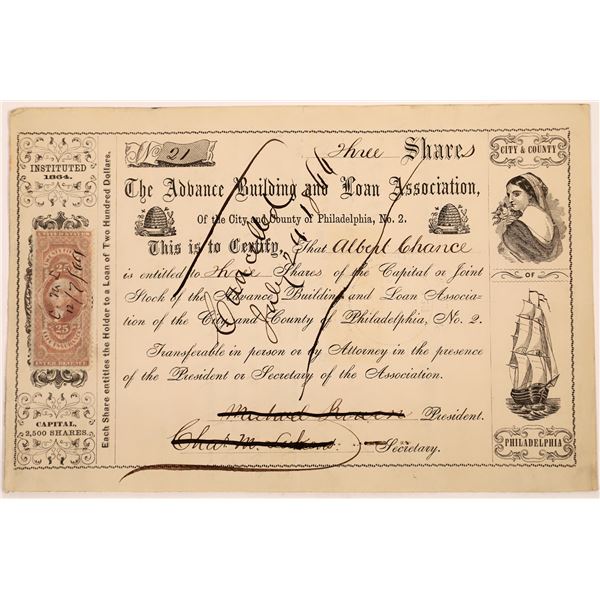 INSTITUTED
1864.
25
CAPITAL,
2,500 SHARES.
Each Share entitles the Holder to a Loan of Two Hundred Dollars.
No 21
Three Shares
The Advance Building and Loan Association,
Of the City and County of Philadelphia, No. 2.
This is to Certify, That Albert Chance
is entitled to Three Shares of the Capital or Joint
Stock of the Advance Building and Loan Associa-
tion of the City and County of Philadelphia, No. 2.
Transferable in person or by Attorney in the presence
of the President or Secretary of the Association.
President.
Chas. M. Secretary.
Cancelled
July
CITY & COUNTY
OF
PHILADELPHIA